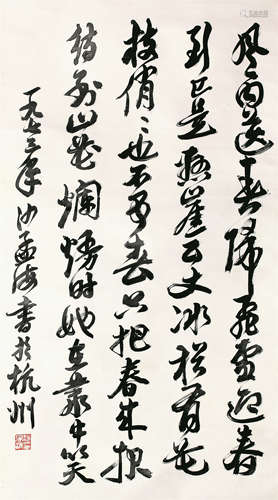 風雨送春歸飛雪迎春
到已是懸崖百丈冰猶有花
枝俏々也不爭春只把春來報
待到山花爛熳時她在叢中笑
一九七三年沙孟海書於杭州